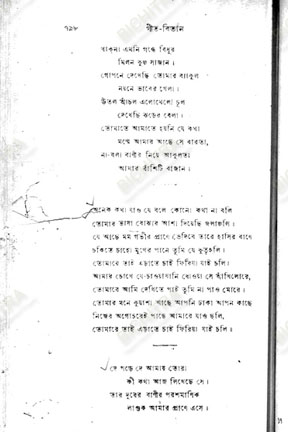 ৭৯৮ গীত-বিতান
থাকনা এমনি গন্ধে বিধুর
মিলন কুঞ্জ সাজান।
গোপনে দেখেছি তোমার ব্যাকুল
নয়নে ভাবের খেলা।
উতল আঁচল এলোথেলো চুল
দেখেছি ঝড়ের বেলা।
তোমাতে আমাতে হয়নি যে কথা
মর্ম্মে আমার আছে সে বারতা,
না-বলা বাণীর নিয়ে আকুলতা
আমার বাঁশিটি বাজান।
অনেক কথা যাও যে ব'লে কোনো কথা না বলি
তোমার ভাষা বোঝার আশা দিয়েছি জলাঞ্জলি।
যে আছে মম গভীর প্রাণে ভেদিবে তারে হাসির বাণে
চকিতে চাহ মুখের পানে তুমি যে কুতূহলী।
তোমারে তাই এড়াতে চাই ফিরিয়া যাই চলি।
আমার চোখে যে-চাওয়াখানি ধোওয়া সে আঁখিলোরে,
তোমারে আমি দেখিতে পাই তুমি না পাও মোরে।
তোমার মনে কুয়াশা আছে আপনি ঢাকা আপন কাছে
নিজের অগোচরেই পাছে আমারে যাও ছলি,
তোমারে তাই এড়াতে চাই ফিরিয়া যাই চলি।
কে পড়ে দে আমায় তোরা
কী কথা আজ লিখেছে সে।
তার দূরের বাণীর পরশমাণিক
লাগুক আমার প্রাণে এসে।